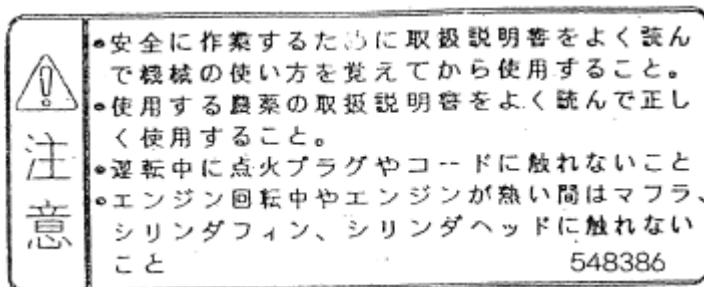 注意
•安全に作業するために取扱説明書をよく読ん
で機械の使い方を覚えてから使用すること。
•使用する農薬の取扱説明書をよく読んで正し
く使用すること。
•運転中に点火プラグやコードに触れないこと
•エンジン回転中やエンジンが熱い間はマフラ、
シリンダフィン、シリンダヘッドに触れない
こと
548386